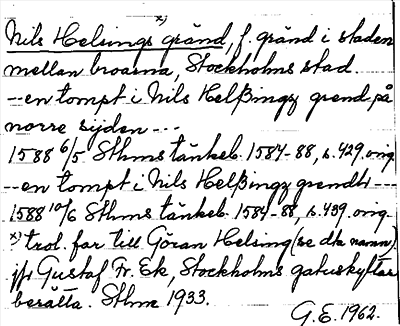 Nils Helsings x) gränd, f. gränd i staden
mellan broarna, Stockholms stad.
--en tompt i Nils Helßingz grend på
norre sijden ---
1588 6/5 Sthms tänkeb. 1584-88, s. 429. orig.
--en tompt i Nils Helßingz grendh ---
1588 10/6 Sthms tänkeb. 1584-88, s. 439. orig.
x) trol. far till Göran Helsing (se dta namn).
jfr Gustaf Fr. Ek, Stockholms gatuskyltar
berätta. Sthm 1933.
G.E. 1962.